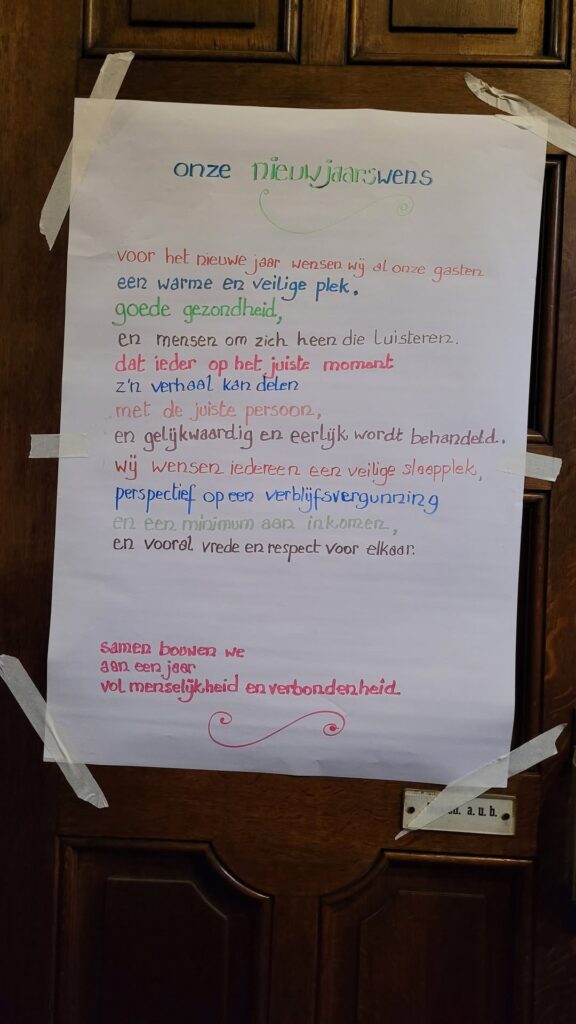 onze nieuwjaarswens
voor het nieuwe jaar wensen wij al onze gasten
een warme en veilige plek.
goede gezondheid,
en mensen om zich heen die luisteren.
dat ieder op het juiste moment
z'n verhaal kan delen
met de juiste persoon,
en gelijkwaardig en eerlijk wordt behandeld.
wij wensen iedereen een veilige slaapplek,
perspectief op een verblijfsvergunning
en een minimum aan inkomen,
en vooral vrede en respect voor elkaar.
samen bouwen we
aan een jaar
vol menselijkheid en verbondenheid.
a.u.b.